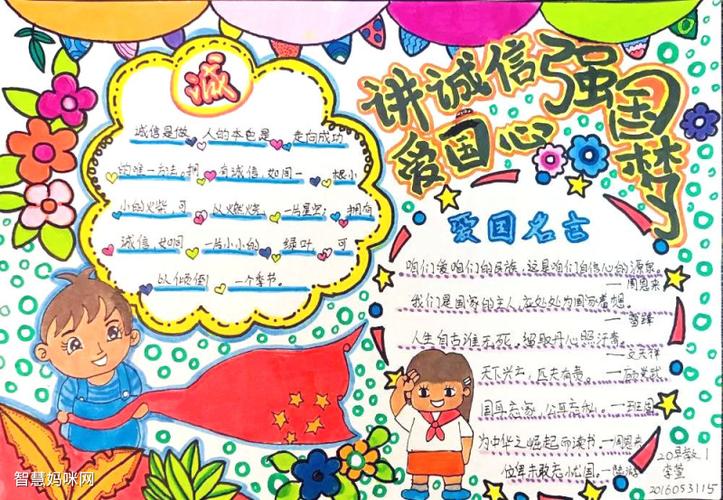 诚
诚信是做人的本色是走向成功
的唯一方法。拥有诚信,如同一根小
小的火柴,可以燃烧一片星空;拥有
诚信,如同一片小小的绿叶,可
以倾倒一个季节。
讲诚信强国梦
爱国心
爱国名言
咱们爱咱们的民族,这是咱们自信心的源泉。
—周恩来
我们是国家的主人,应处处为国家着想。
—雷锋
人生自古谁无死,留取丹心照汗青。
—文天祥
天下兴亡,匹夫有责。—顾炎武
国耳忘家,公耳忘私。—班固
为中华之崛起而读书。—周恩来
位卑未敢忘忧国。—陆游
李萱
2016053115
智慧妈咪网